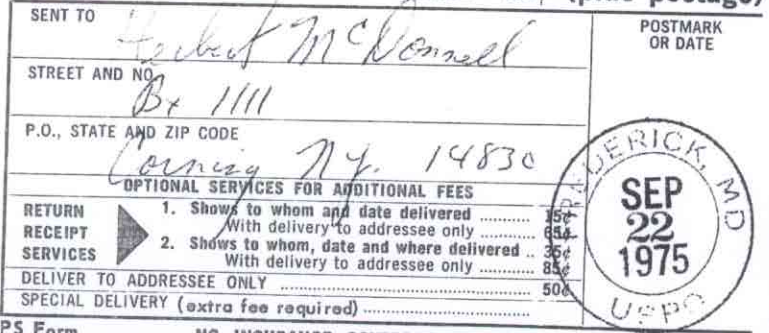 (plus postage)
SENT TO
Herbert McDonnell
POSTMARK
OR DATE
STREET AND NO.
Bx 1111
P.O., STATE AND ZIP CODE
Corning N.Y. 14830
OPTIONAL SERVICES FOR ADDITIONAL FEES
RETURN
RECEIPT
SERVICES
1. Shows to whom and date delivered ........... 15¢
With delivery to addressee only ........... 65¢
2. Shows to whom, date and where delivered .. 35¢
With delivery to addressee only ........... 85¢
DELIVER TO ADDRESSEE ONLY ........... 50¢
SPECIAL DELIVERY (extra fee required)
FREDERICK, MD
SEP
22
1975
USPO
PS Form
NO INSURANCE